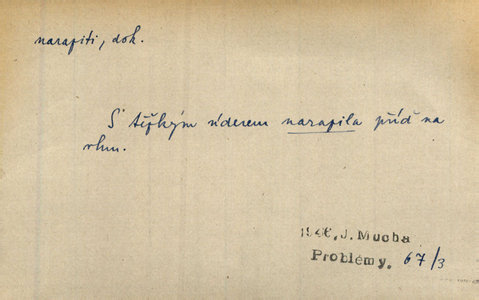 narafiti, dok.
S těžkým úderem narafila příď na
vlnu.
1946, J. Mucha
Problémy. 67/3